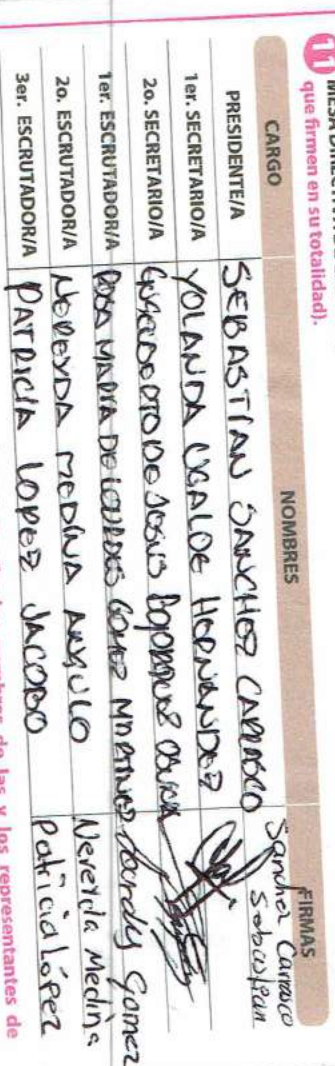 11 MESA DIRECTIVA DE
que firmen en su totalidad).
CARGO NOMBRES FIRMAS
PRESIDENTE/A SEBASTIAN SANCHEZ CARRASCO Sanchez Carrasco Sebastian
1er. SECRETARIO/A YOLANDA UGALDE HERNANDEZ
2o. SECRETARIO/A DE JESUS
1er. ESCRUTADOR/A ROSA MARIA DE LOURDES GOMEZ MARTINEZ Gomez
2o. ESCRUTADOR/A NEREYDA MEDINA ANGULO Nereyda Medina
3er. ESCRUTADOR/A PATRICIA LOPEZ JACOBO Patricia López
nombres de las y los representantes de